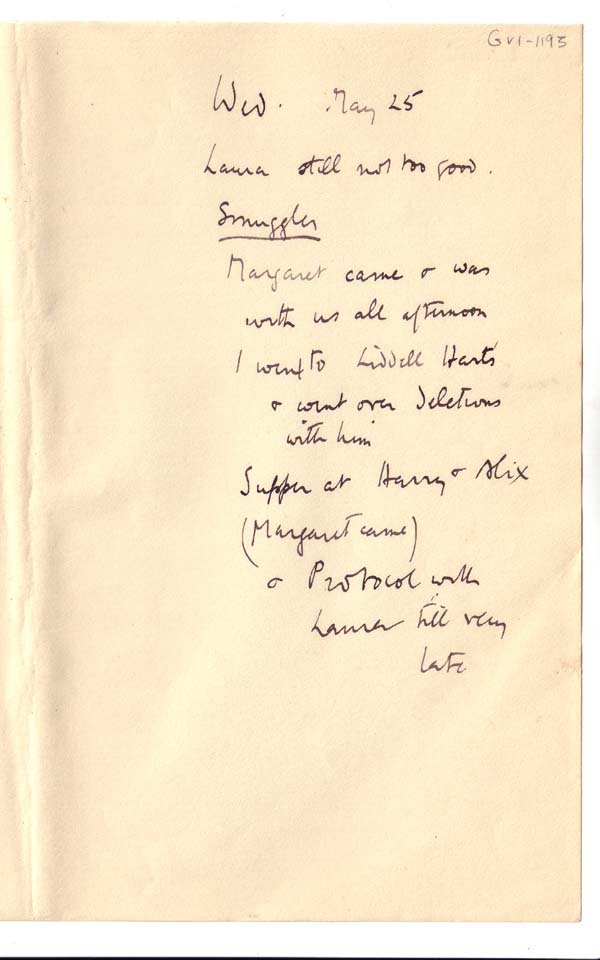 GVI-1193
Wed. May 25
Laura still not too good.
Smuggler
Margaret came & was
with us all afternoon
I went to Liddell Harts
& went over deletions
with him
Supper at Harry & Alix
(Margaret came)
& Protocol with
Laura till very
late